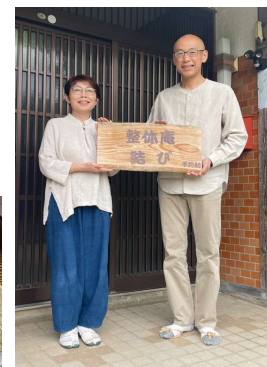 整体庵
結び